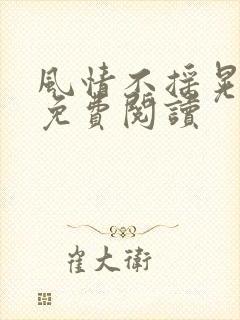 風情不搖晃
免費閱讀
崔大衛